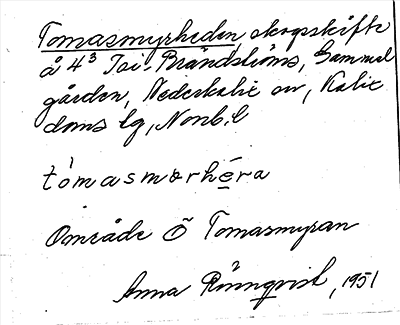 Tomasmyrheden, skogsskifte
å 4³ Joi-Brändströms, Gammel
gården, Nederkalix sn, Kalix
doms lg, Nonb. l
tòmasmørhéra
Område Ö Tomasmyran
Anna Rönnqvist, 1951